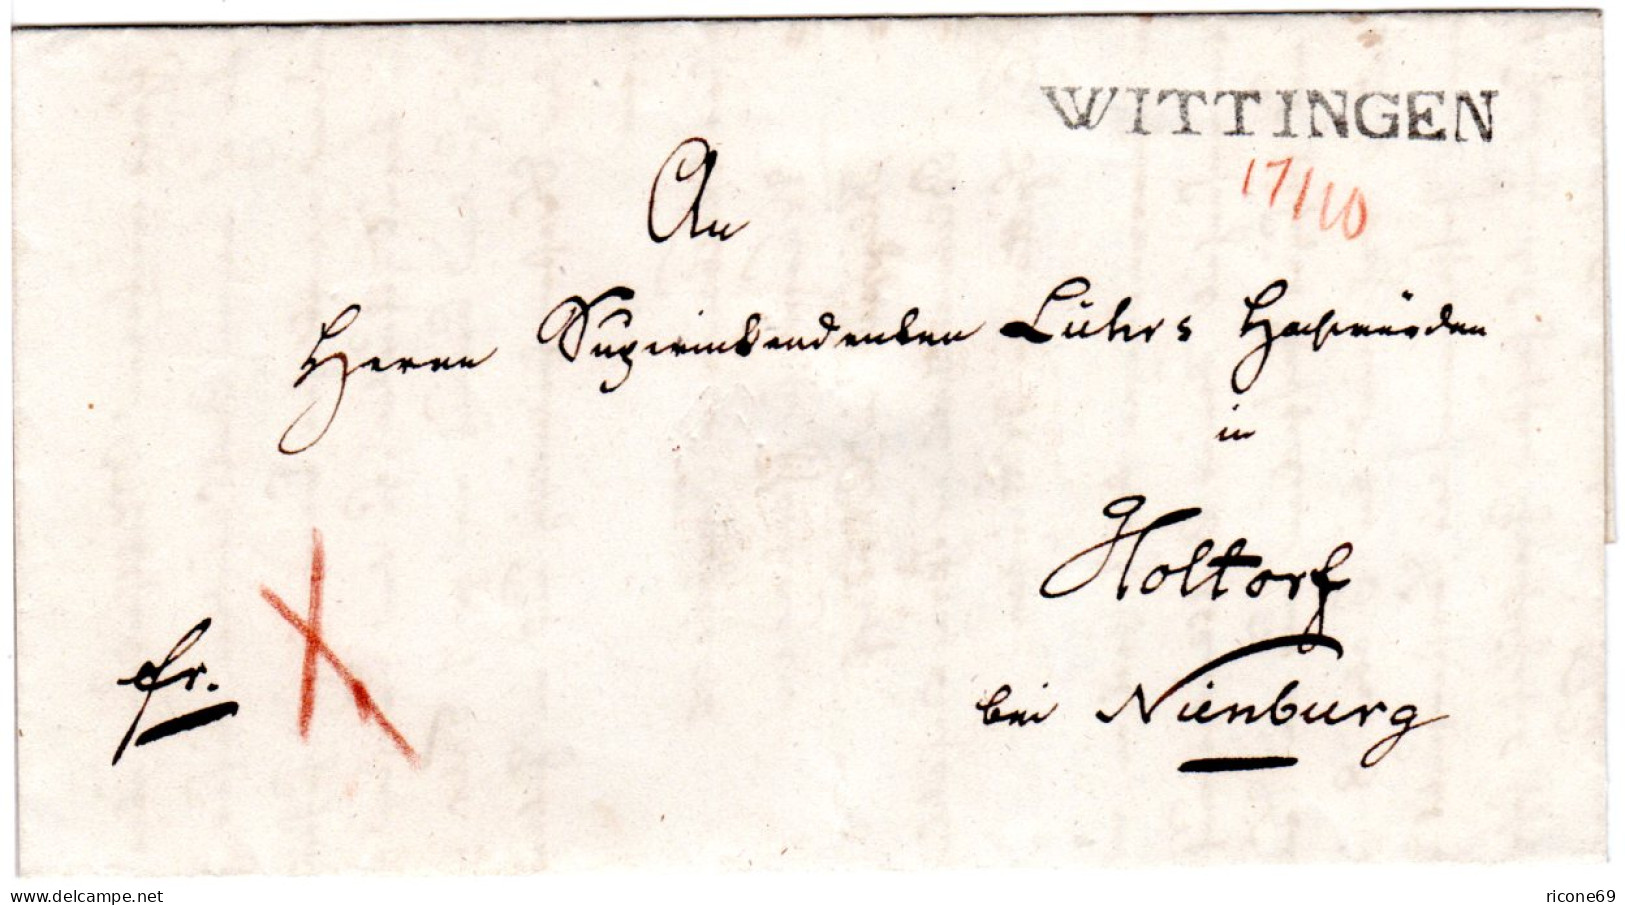 WITTINGEN
17/10
An
Herrn Superintendenten Lührs Hochwürden
in
Holtorf
bei Nienburg
fr.
delcampe.net
ricone69